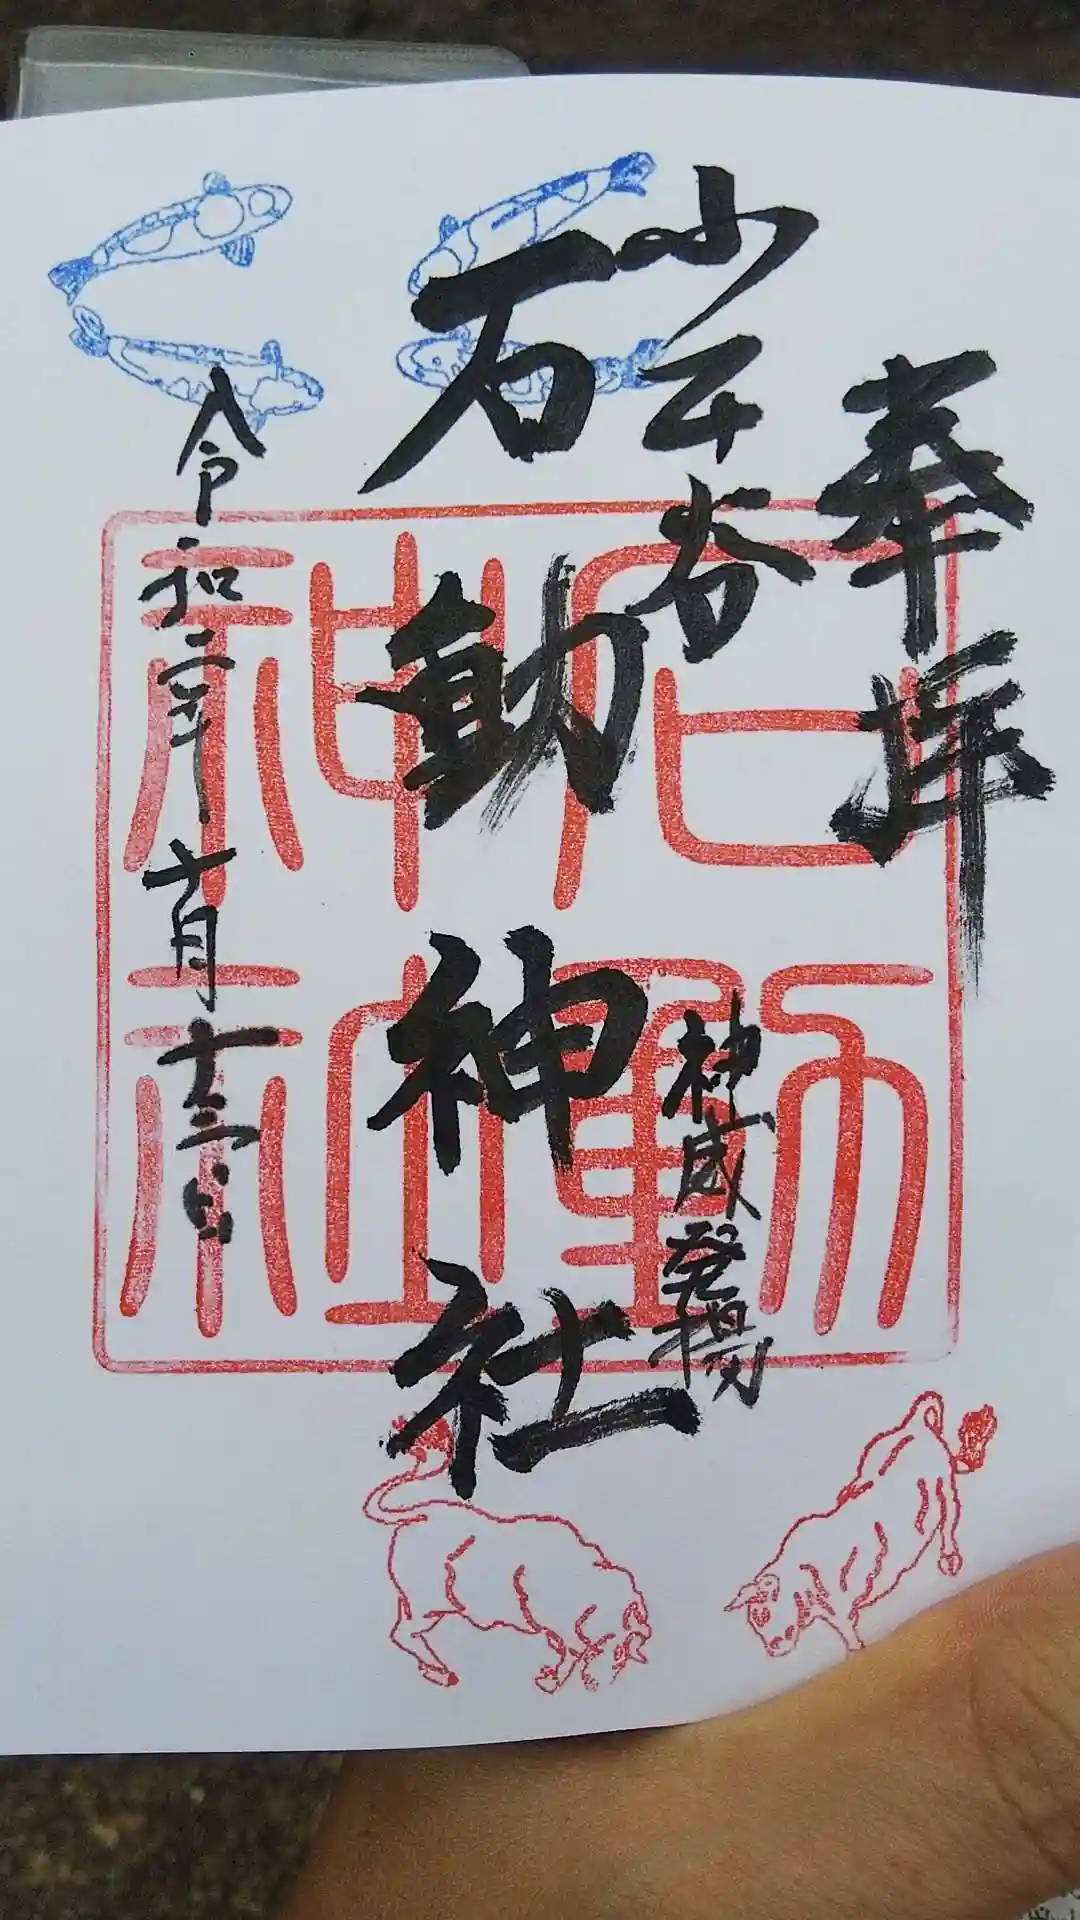 奉拝
小千谷
神威発揚
石動神社
令和二年十月十三日
石動
神社